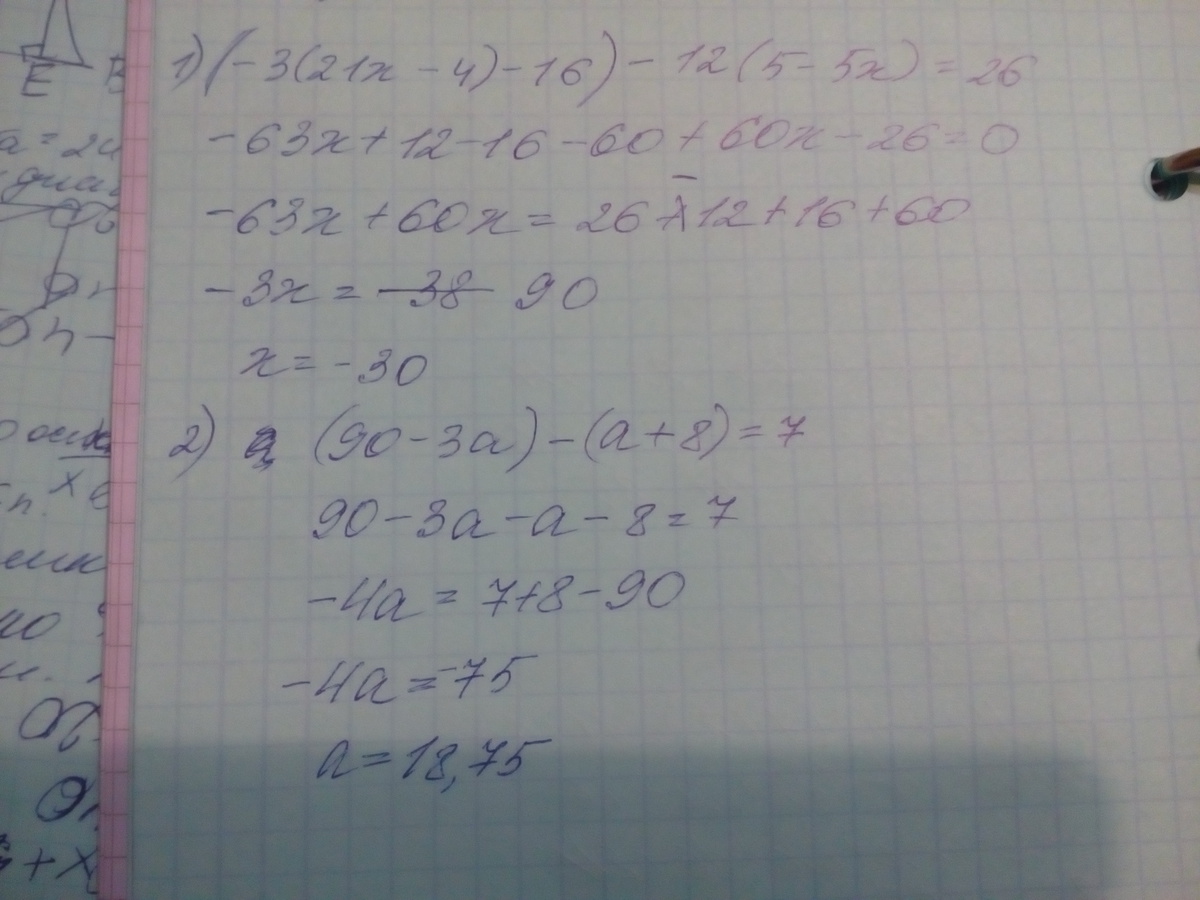 E B
a = 24
1) (-3(21x - 4) - 16) - 12 (5 - 5x) = 26
-63x + 12 - 16 - 60 + 60x - 26 = 0
-63x + 60x = 26 - 12 + 16 + 60
-3x = -38 90
x = -30
2) (90 - 3a) - (a + 8) = 7
90 - 3a - a - 8 = 7
-4a = 7 + 8 - 90
-4a = -75
a = 18,75
+ x